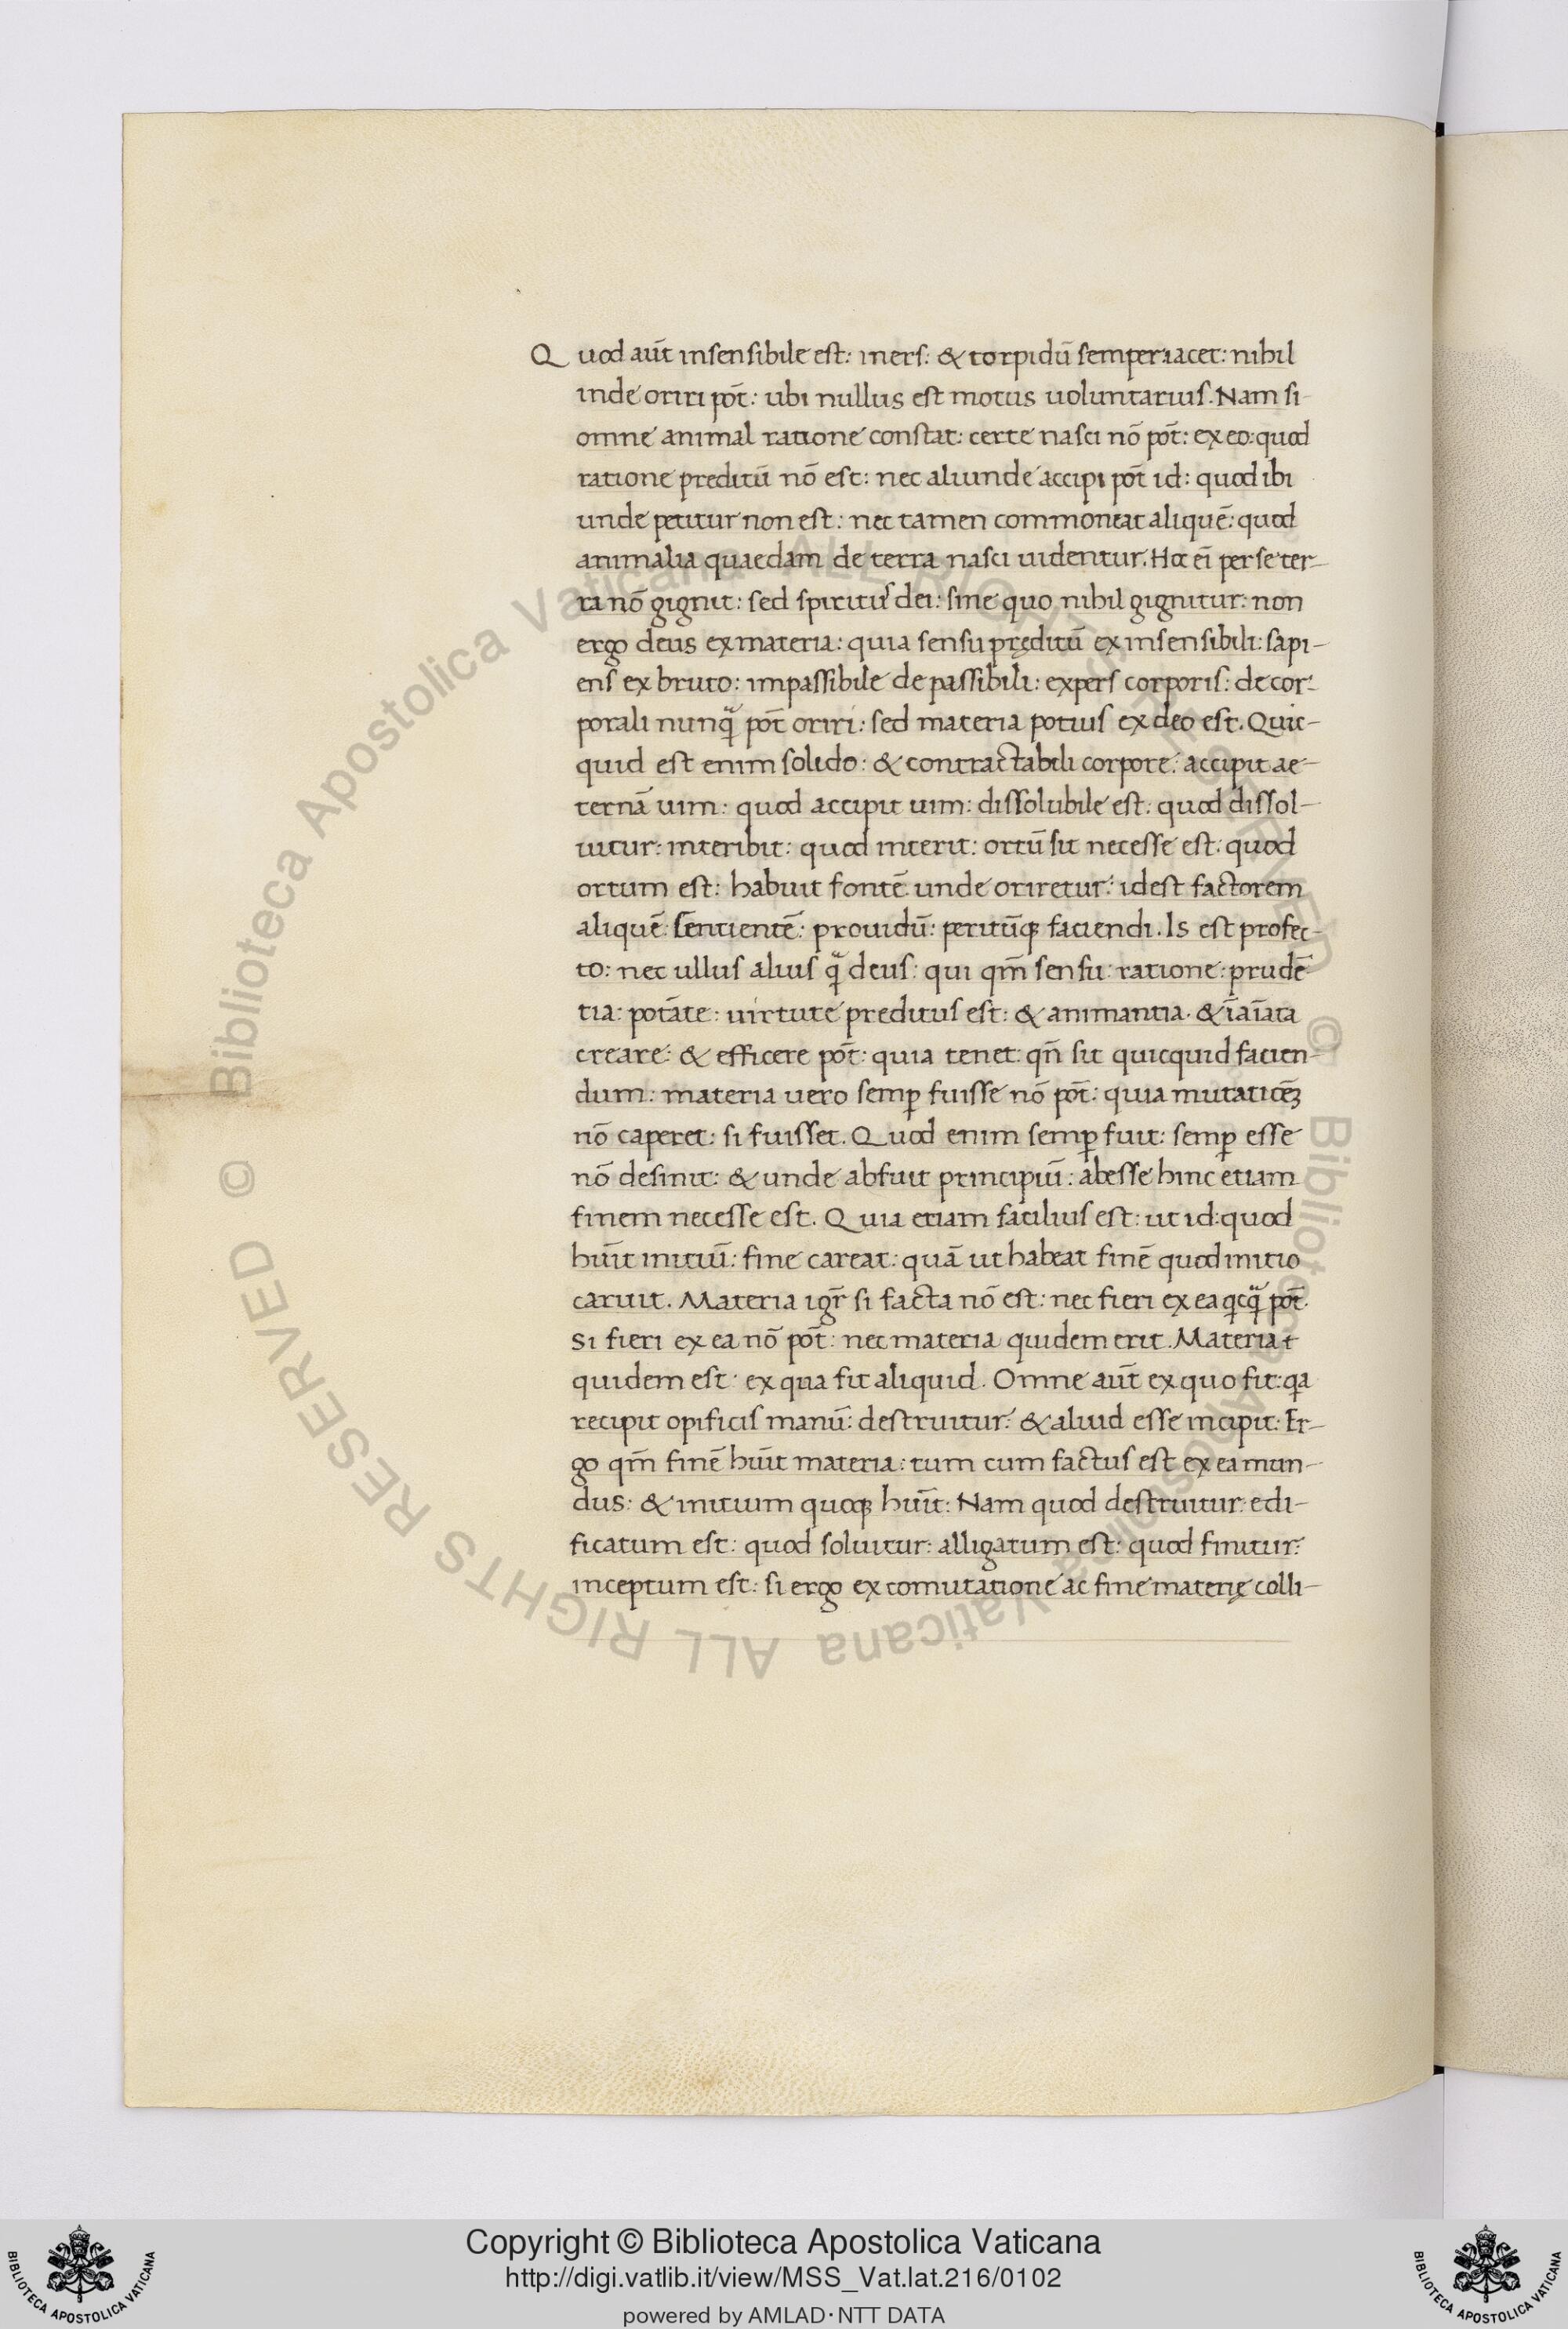 Quod aut̄ insensibile est: iners: & torpidū semper iacet: nihil
inde oriri pōt: ubi nullus est motus uoluntarius. Nam si
omne animal ratione constat: certe nasci nō pōt: ex eo: quod
ratione preditū nō est: nec aliunde accipi pōt id: quod ibi
unde petitur non est: nec tamen commoneat aliquē: quod
animalia quaedam de terra nasci uidentur. Hoc ei̅ per se ter-
ra nō gignit: sed spiritus dei: sine quo nihil gignitur: non
ergo deus ex materia: quia sensu pręditū ex insensibili: sapi-
ens ex bruto: impassibile de passibili: expers corporis: de cor-
porali nunqͣ pōt oriri: sed materia potius ex deo est. Quic-
quid est enim solido: & contractabili corpore: accipit ae-
ternā uim: quod accipit uim: dissolubile est: quod dissol-
uitur: interibit: quod interit: ortū sit necesse est: quod
ortum est: habuit fontē: unde oriretur: idest factorem
aliquē: sentientē: prouidū: peritūqꝫ faciendi. Is est profec-
to: nec ullus alius qͣ deus: qui qm̄ sensu: ratione: prudē
tia: potāte: uirtute preditus est: & animantia. & īaīata
creare: & efficere pōt: quia tenet: qn̄ sit quicquid facien-
dum: materia uero semꝑ fuisse nō pōt: quia mutationēꝫ
nō caperet: si fuisset. Quod enim semꝑ fuit: semꝑ esse
nō desinit: & unde abfuit principiū: abesse hinc etiam
finem necesse est. Quia etiam facilius est: ut id: quod
hūit initiū: fine careat: quā ut habeat finē quod initio
caruit. Materia igr̄ si facta nō est: nec fieri ex ea qͥcqͣ pōt.
Si fieri ex ea nō pōt: nec materia quidem erit. Materia t
quidem est: ex qua fit aliquid. Omne aut̄ ex quo fit: qa
recipit opificis manū: destruitur: & aliud esse incipit: Er-
go qm̄ finē hūit materia: tum cum factus est ex ea mun-
dus: & initium quoqꝫ hūit: Nam quod destruitur: edi-
ficatum est: quod soluitur: alligatum est: quod finitur:
inceptum est: si ergo ex comutatione ac fine materię colli-
Copyright © Biblioteca Apostolica Vaticana
http://digi.vatlib.it/view/MSS_Vat.lat.216/0102
powered by AMLAD·NTT DATA
© Biblioteca Apostolica Vaticana ALL RIGHTS RESERVED
© Biblioteca Apostolica Vaticana ALL RIGHTS RESERVED
BIBLIOTECA APOSTOLICA VATICANA
BIBLIOTECA APOSTOLICA VATICANA